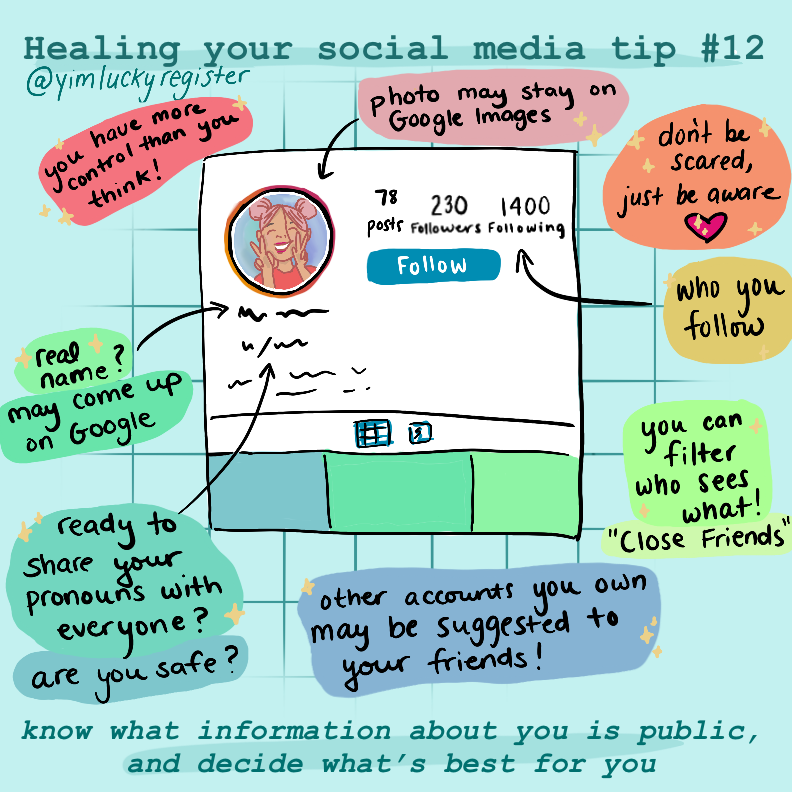 Healing your social media tip #12
@yimluckyregister
you have more
control than you
think!
photo may stay on
Google Images
don't be
scared,
just be aware
78
posts
230
Followers
1400
Following
Follow
who you
follow
real
name?
may come up
on Google
you can
filter
who sees
what!
"Close Friends"
ready to
share your
pronouns with
everyone?
are you safe?
other accounts you own
may be suggested to
your friends!
know what information about you is public,
and decide what's best for you